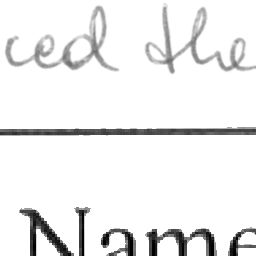 ced the
Name